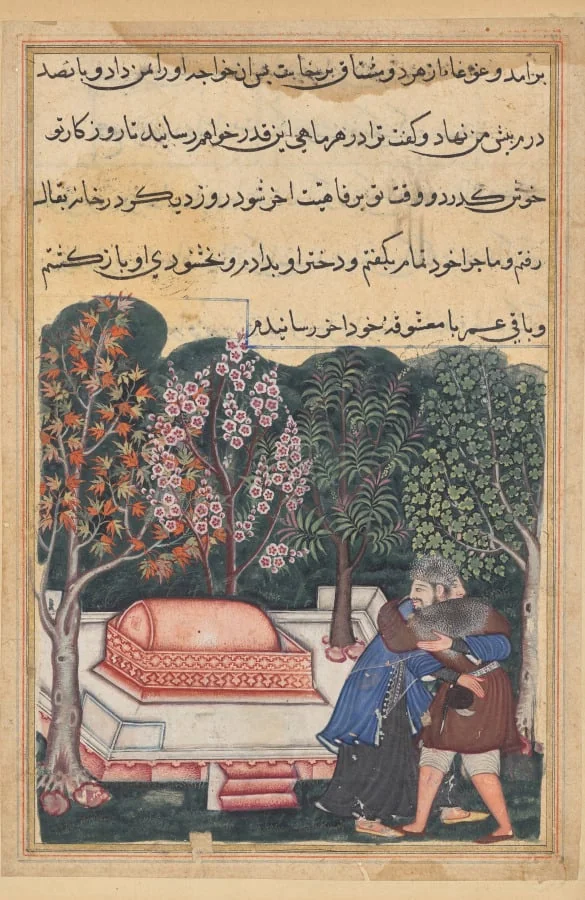 برآمد و غوغا از هر دو مشتاق برخاست پس آن خواجه او را بمن داد و پانصد
در پیش من نهاد و گفت ترا در هر ماهی این قدر خواهم رسانید تا روزکار تو
خوش گذرد و وقت تو برفاهیت اخر شود روز دیکر در خانۀ بقال
رفتم و ماجرا خود تمام بکفتم و دختر او بدادم و بخشنودی او باز کشتم
و باقی عمر با معشوقۀ خود اخر رسانیدم